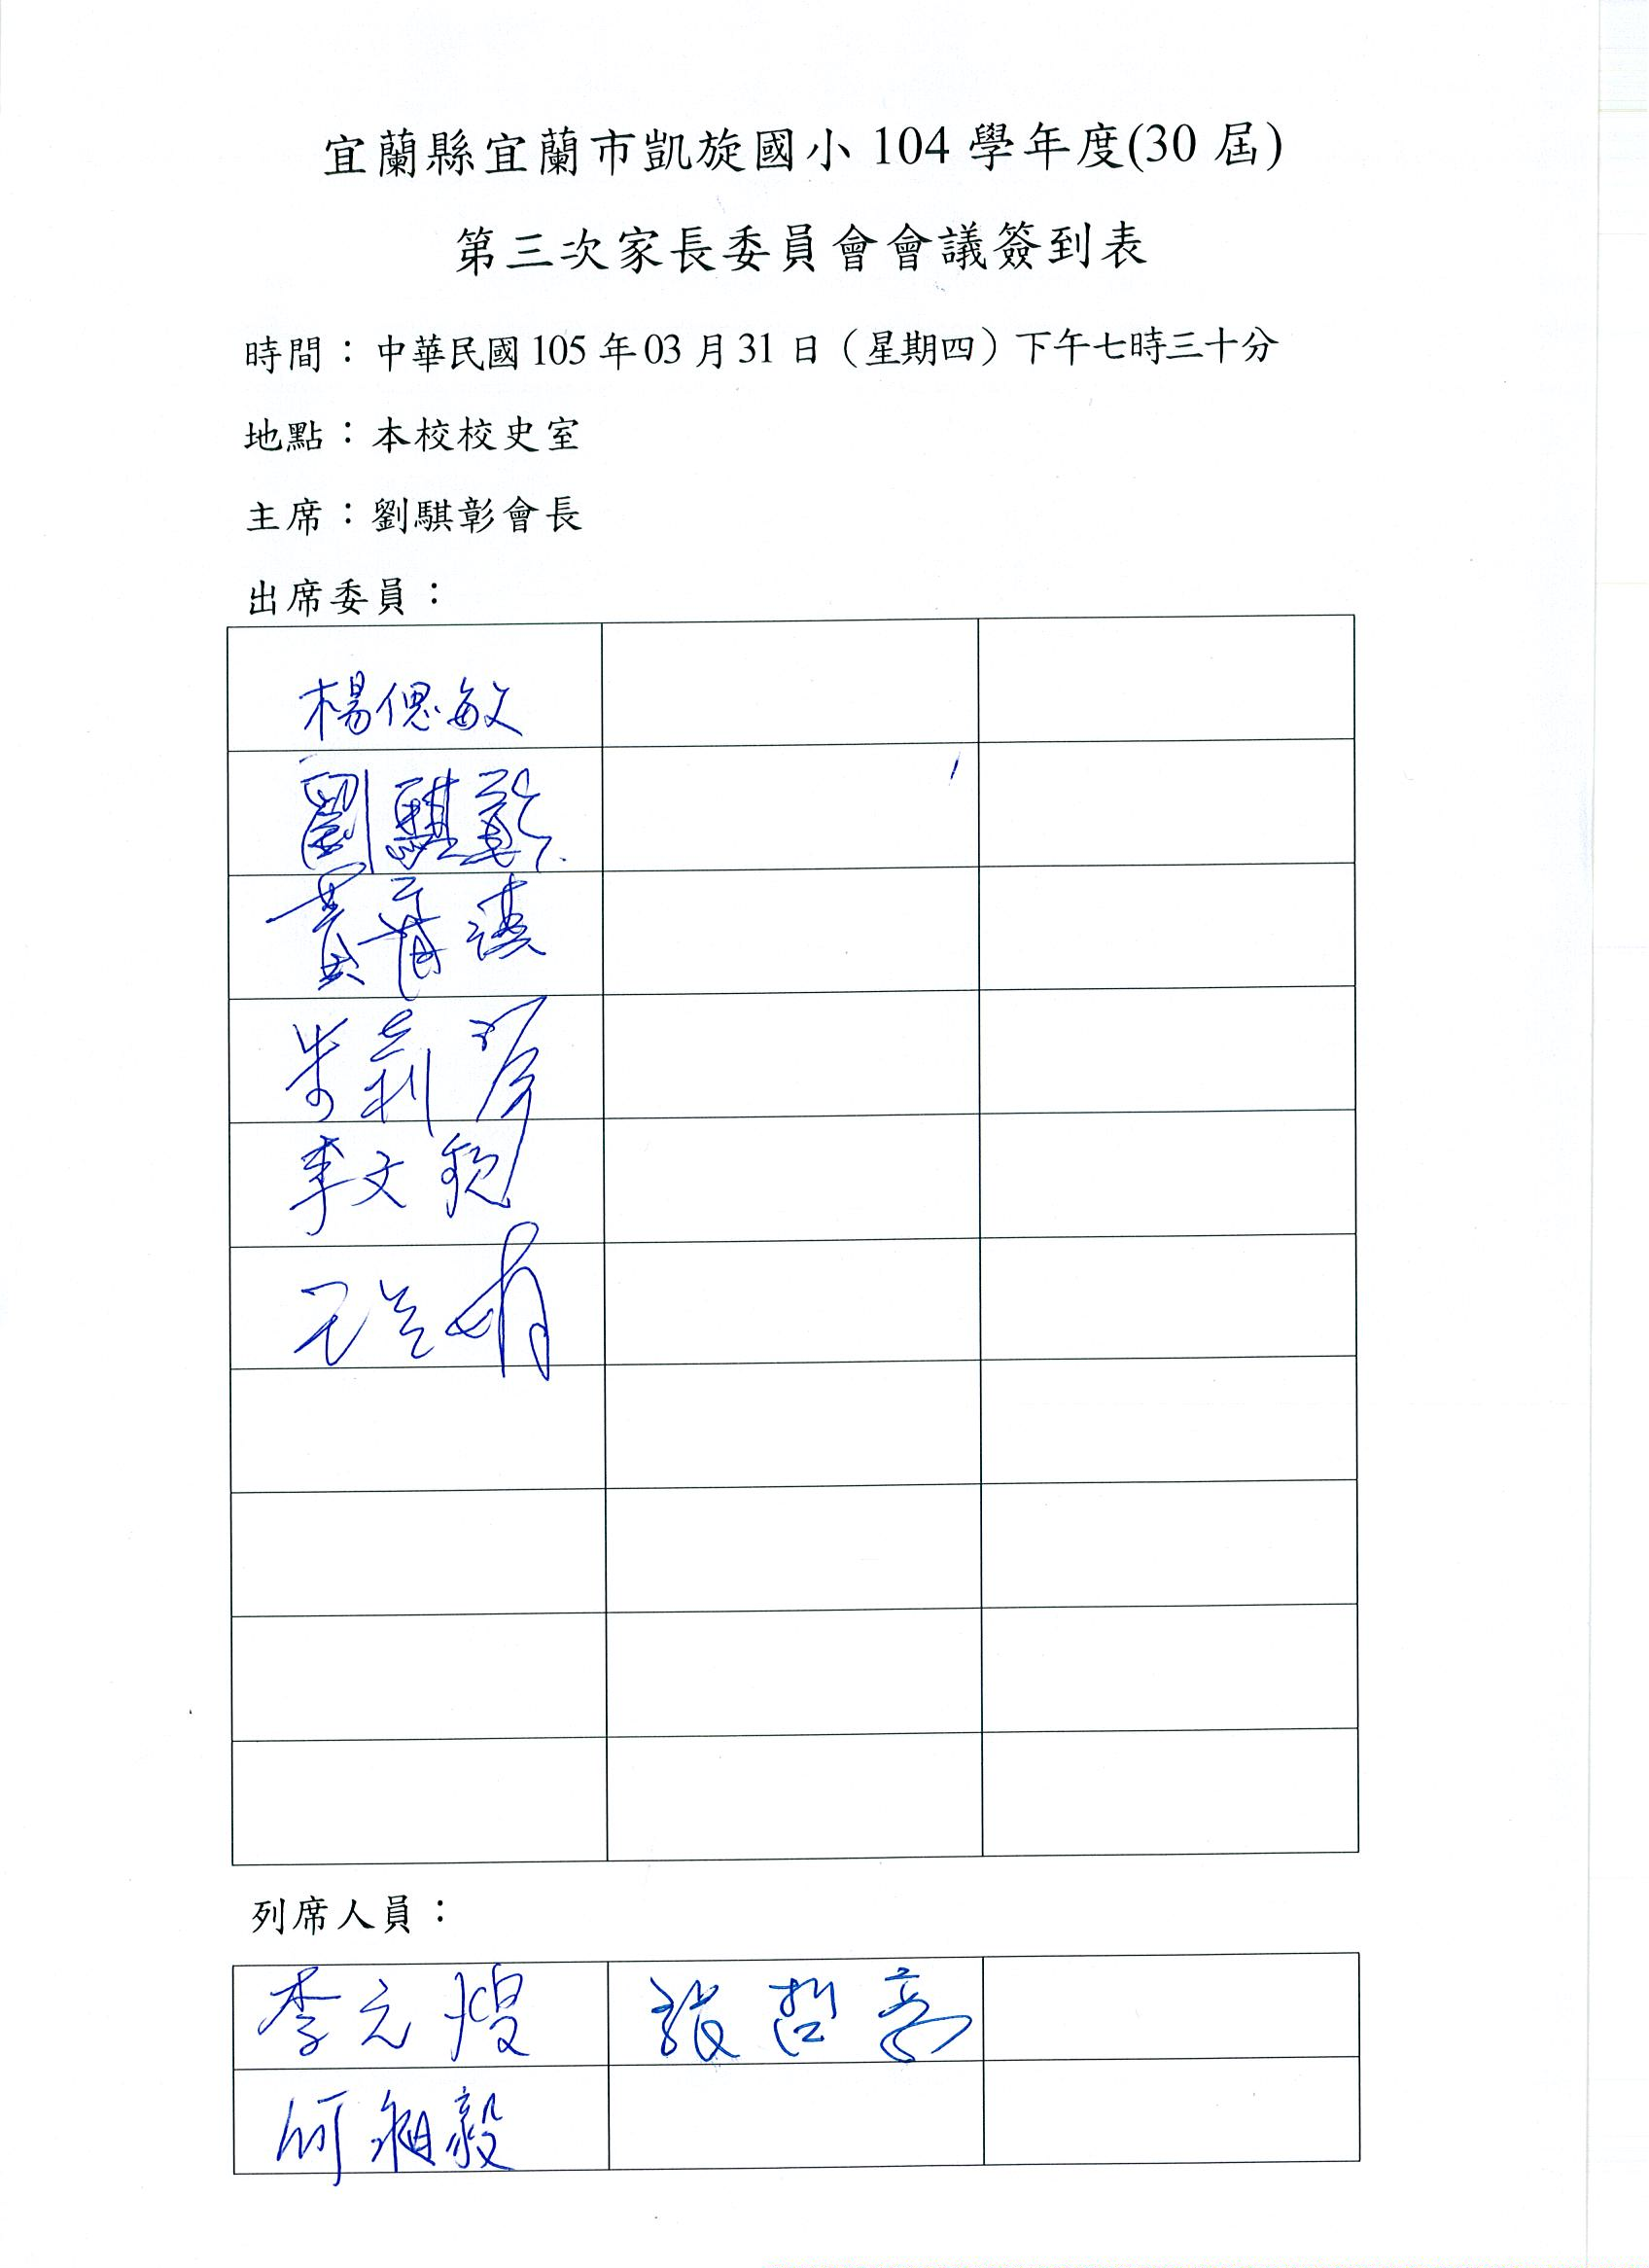 宜蘭縣宜蘭市凱旋國小 104 學年度(30 屆)
第三次家長委員會會議簽到表
時間：中華民國 105 年 03 月 31 日（星期四）下午七時三十分
地點：本校校史室
主席：劉騏彰會長
出席委員：
楊偲敏
劉騏彰
黃
朱莉
李文
列席人員：
李元煌 張哲豪
何湘毅